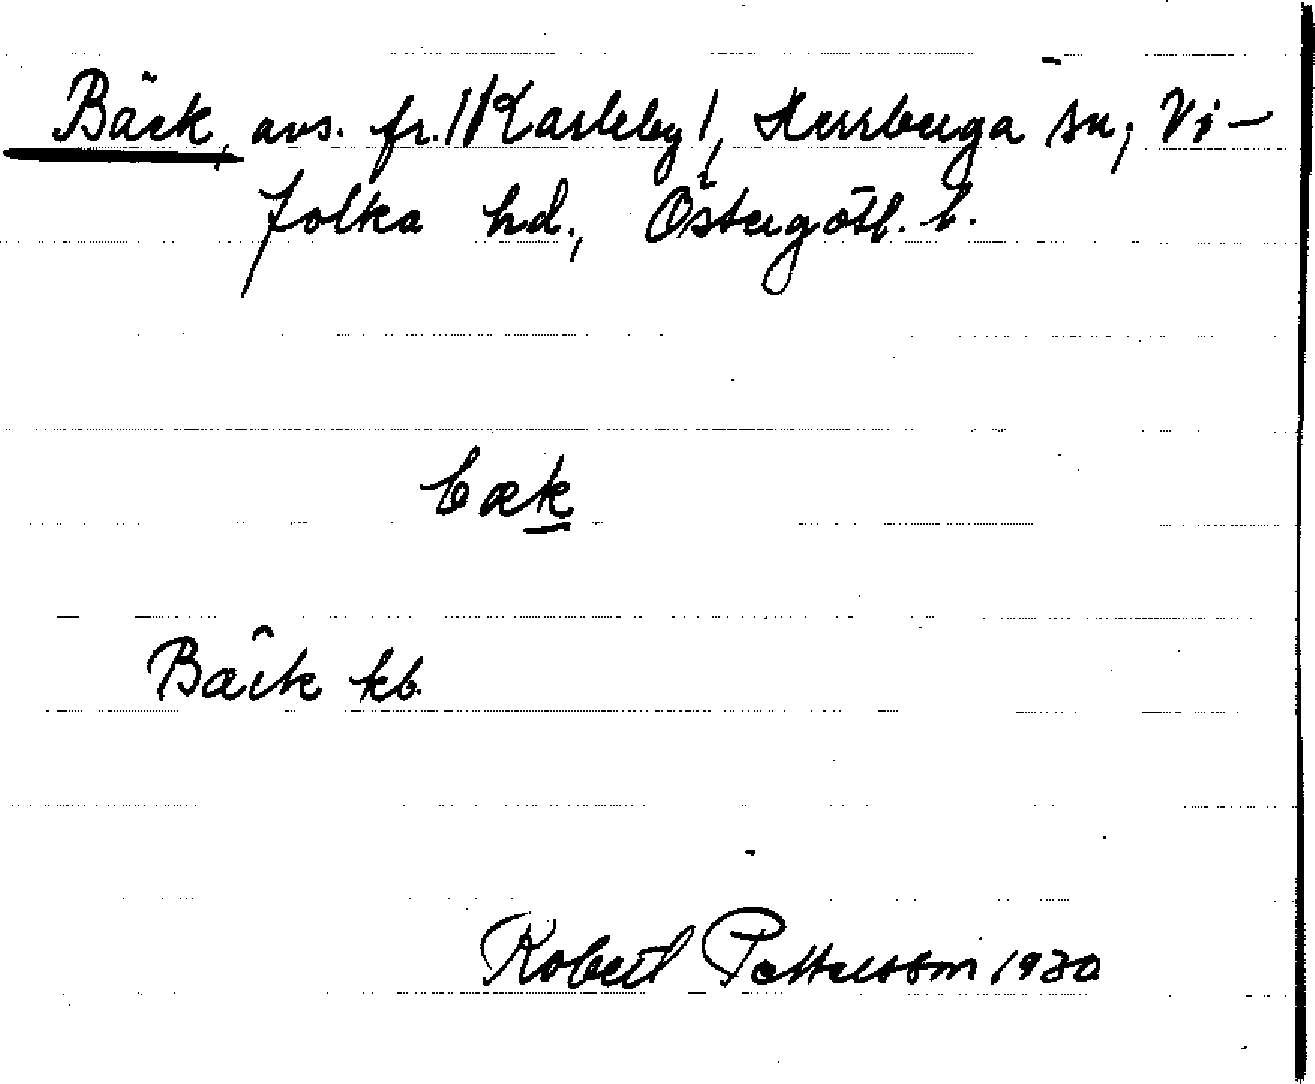 Bäck, avs. fr. //Karleby/, Herrberga sn, Vi-
folka hd., Östergötl. l.
bæk
Bäck kb.
Robert Pettersson 1930